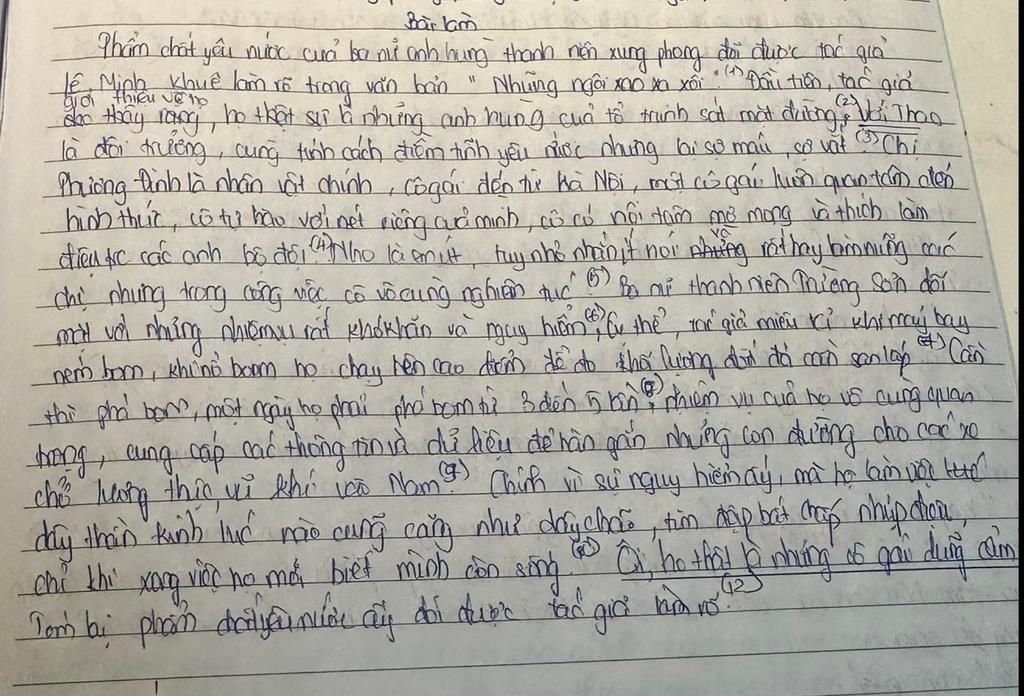 Bài làm
Phẩm chất yêu nước cuả ba nữ anh hùng thanh niên xung phong đã được tác giả
Lê Minh Khuê làm rõ trong văn bản " Những ngôi sao xa xôi". (1) Đầu tiên, tác giả
giới thiệu về họ
thấy rằng, họ thật sự là những anh hùng cuả tổ trinh sát mặt đường. (2) Với Thao
là đội trưởng, cùng tính cách điềm tĩnh yêu nước nhưng lại sợ máu, sợ vắt (3) Chị
Phương Định là nhân vật chính, cô gái đến từ Hà Nội, một cô gái luôn quan tâm đến
hình thức, cô tự hào với nét riêng cuả mình, cô có nội tâm mơ mộng và thích làm
điệu các anh bộ đội (4) Nho là em út, tuy nhỏ nhắn, ít nói và rất hay làm nũng các
chị nhưng trong công việc cô vô cùng nghiêm túc (5) Ba nữ thanh niên Trường Sơn đối
mặt với những nhiệm vụ rất khó khăn và nguy hiểm. (6) Cụ thể, tác giả miêu tả khi máy bay
ném bom, khi nổ boom họ chạy lên cao điểm để đo khối lượng đất đá cần san lấp (7) Cần
thì phá bom, một ngày họ phải phá bom từ 3 đến 5 lần. (8) nhiệm vụ cuả họ vô cùng quan
trọng, cung cấp các thông tin và dữ liệu để hàn gắn những con đường cho các xe
chở lương thực, vũ khí vào Nam. (9) Chính vì sự nguy hiểm ấy, mà họ làm việc
dây thần kinh lúc nào cũng căng như dây chão, tim đập bất chấp nhịp điệu,
chỉ khi xong việc họ mới biết mình còn sống Ôi, họ thật là những cô gái dũng cảm
Tóm lại phẩm chất yêu nước ấy đã được tác giả làm rõ. (12)